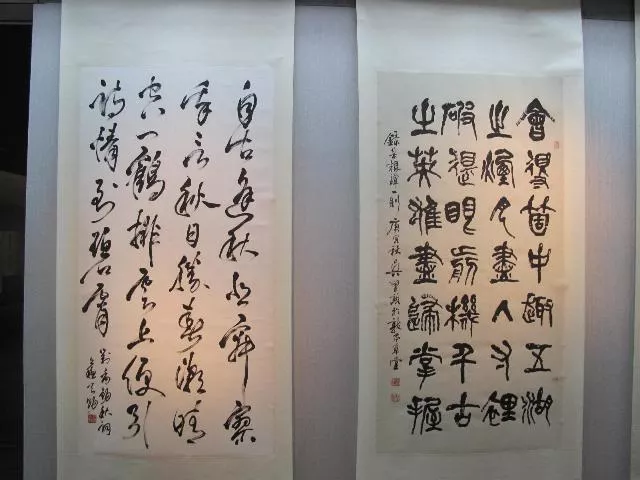 會得箇中趣五湖
之煙月盡入寸裡
破得眼前機千古
之英雄盡歸掌握
錄菜根譚一則 庚寅秋
自古逢秋悲寂寥
我言秋日勝春潮晴
空一鶴排雲上便引
詩情到碧霄
劉禹錫秋詞